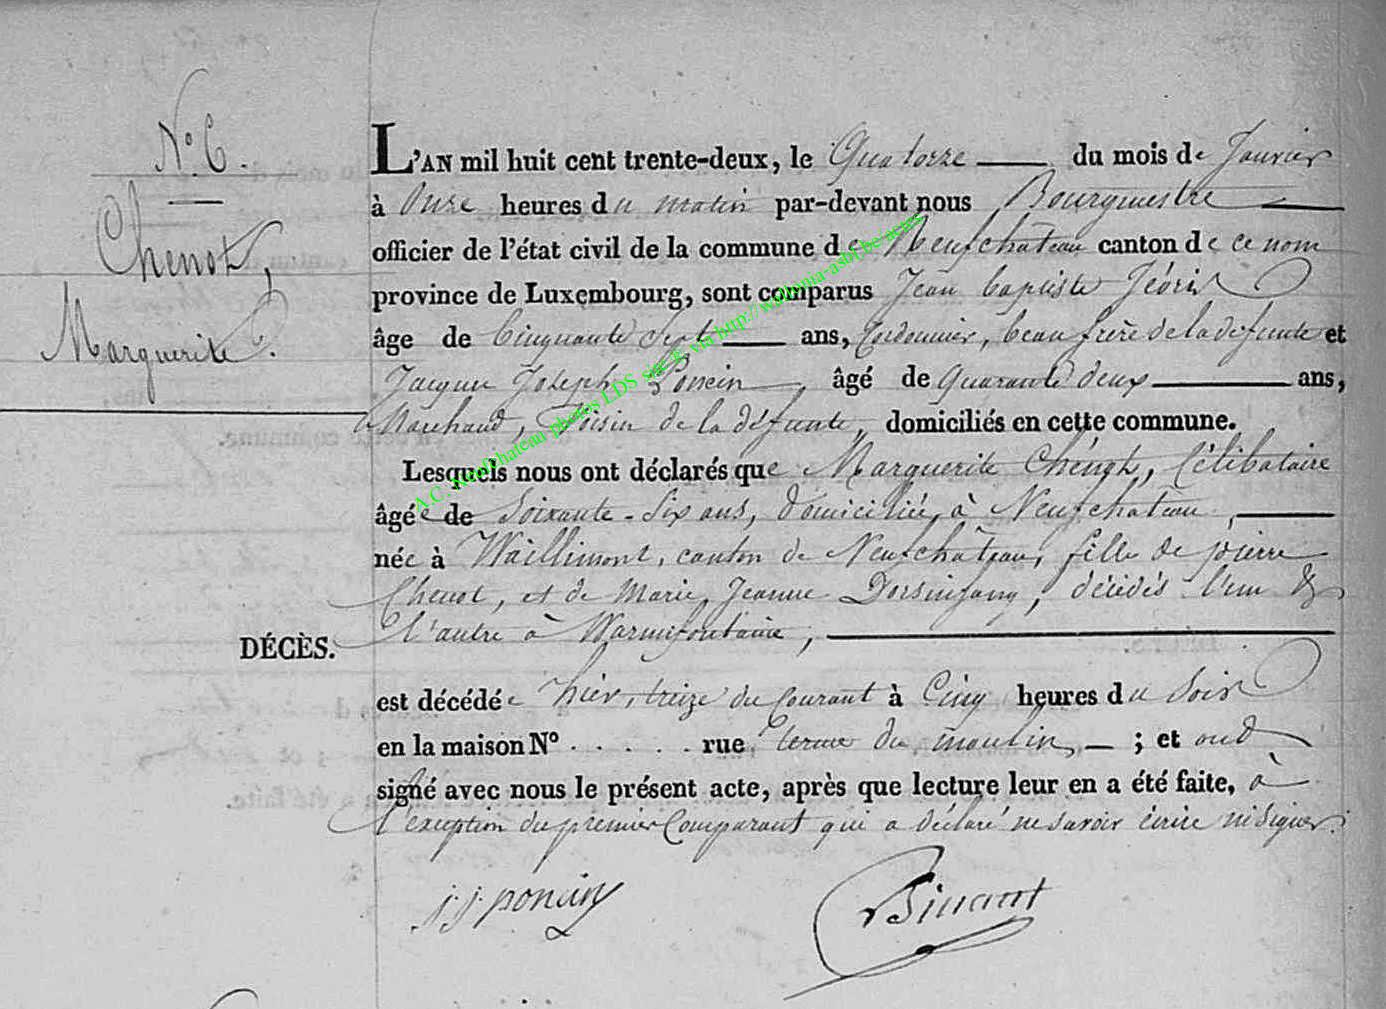 N.° 6.
Chenot,
Marguerite.
L'AN mil huit cent trente-deux, le Quatorze du mois de Janvier
à Onze heures du matin par-devant nous Bourgmestre
officier de l'état civil de la commune de Neufchâteau canton de ce nom
province de Luxembourg, sont comparus Jean baptiste
âge de Cinquante Sept ans, Cordonnier, beau frère de la défunte et
Jacques Joseph Poncin, âgé de quarante deux ans,
Marchand, Voisin de la défunte, domiciliés en cette commune.
Lesquels nous ont déclarés que Marguerite Chenot, Célibataire
âgée de Soixante-Six ans, domiciliée à Neufchateau,
née à Waillimont, canton de Neufchâteau, fille de pierre
Chenot, et de Marie Jeanne, décédés l'un &
l'autre à Warmifontaine,
DÉCÈS.
est décédée hier, treize du Courant à Cinq heures du Soir
en la maison N° . . . . . rue terme du moulin ; et ont
signé avec nous le présent acte, après que lecture leur en a été faite, à
l'exception du premier Comparant qui a déclaré ne savoir écrire ni signer.
J.J. poncin
A.C. Neufchateau photos LDS sur le via http://wallonia-asbl.be/actes